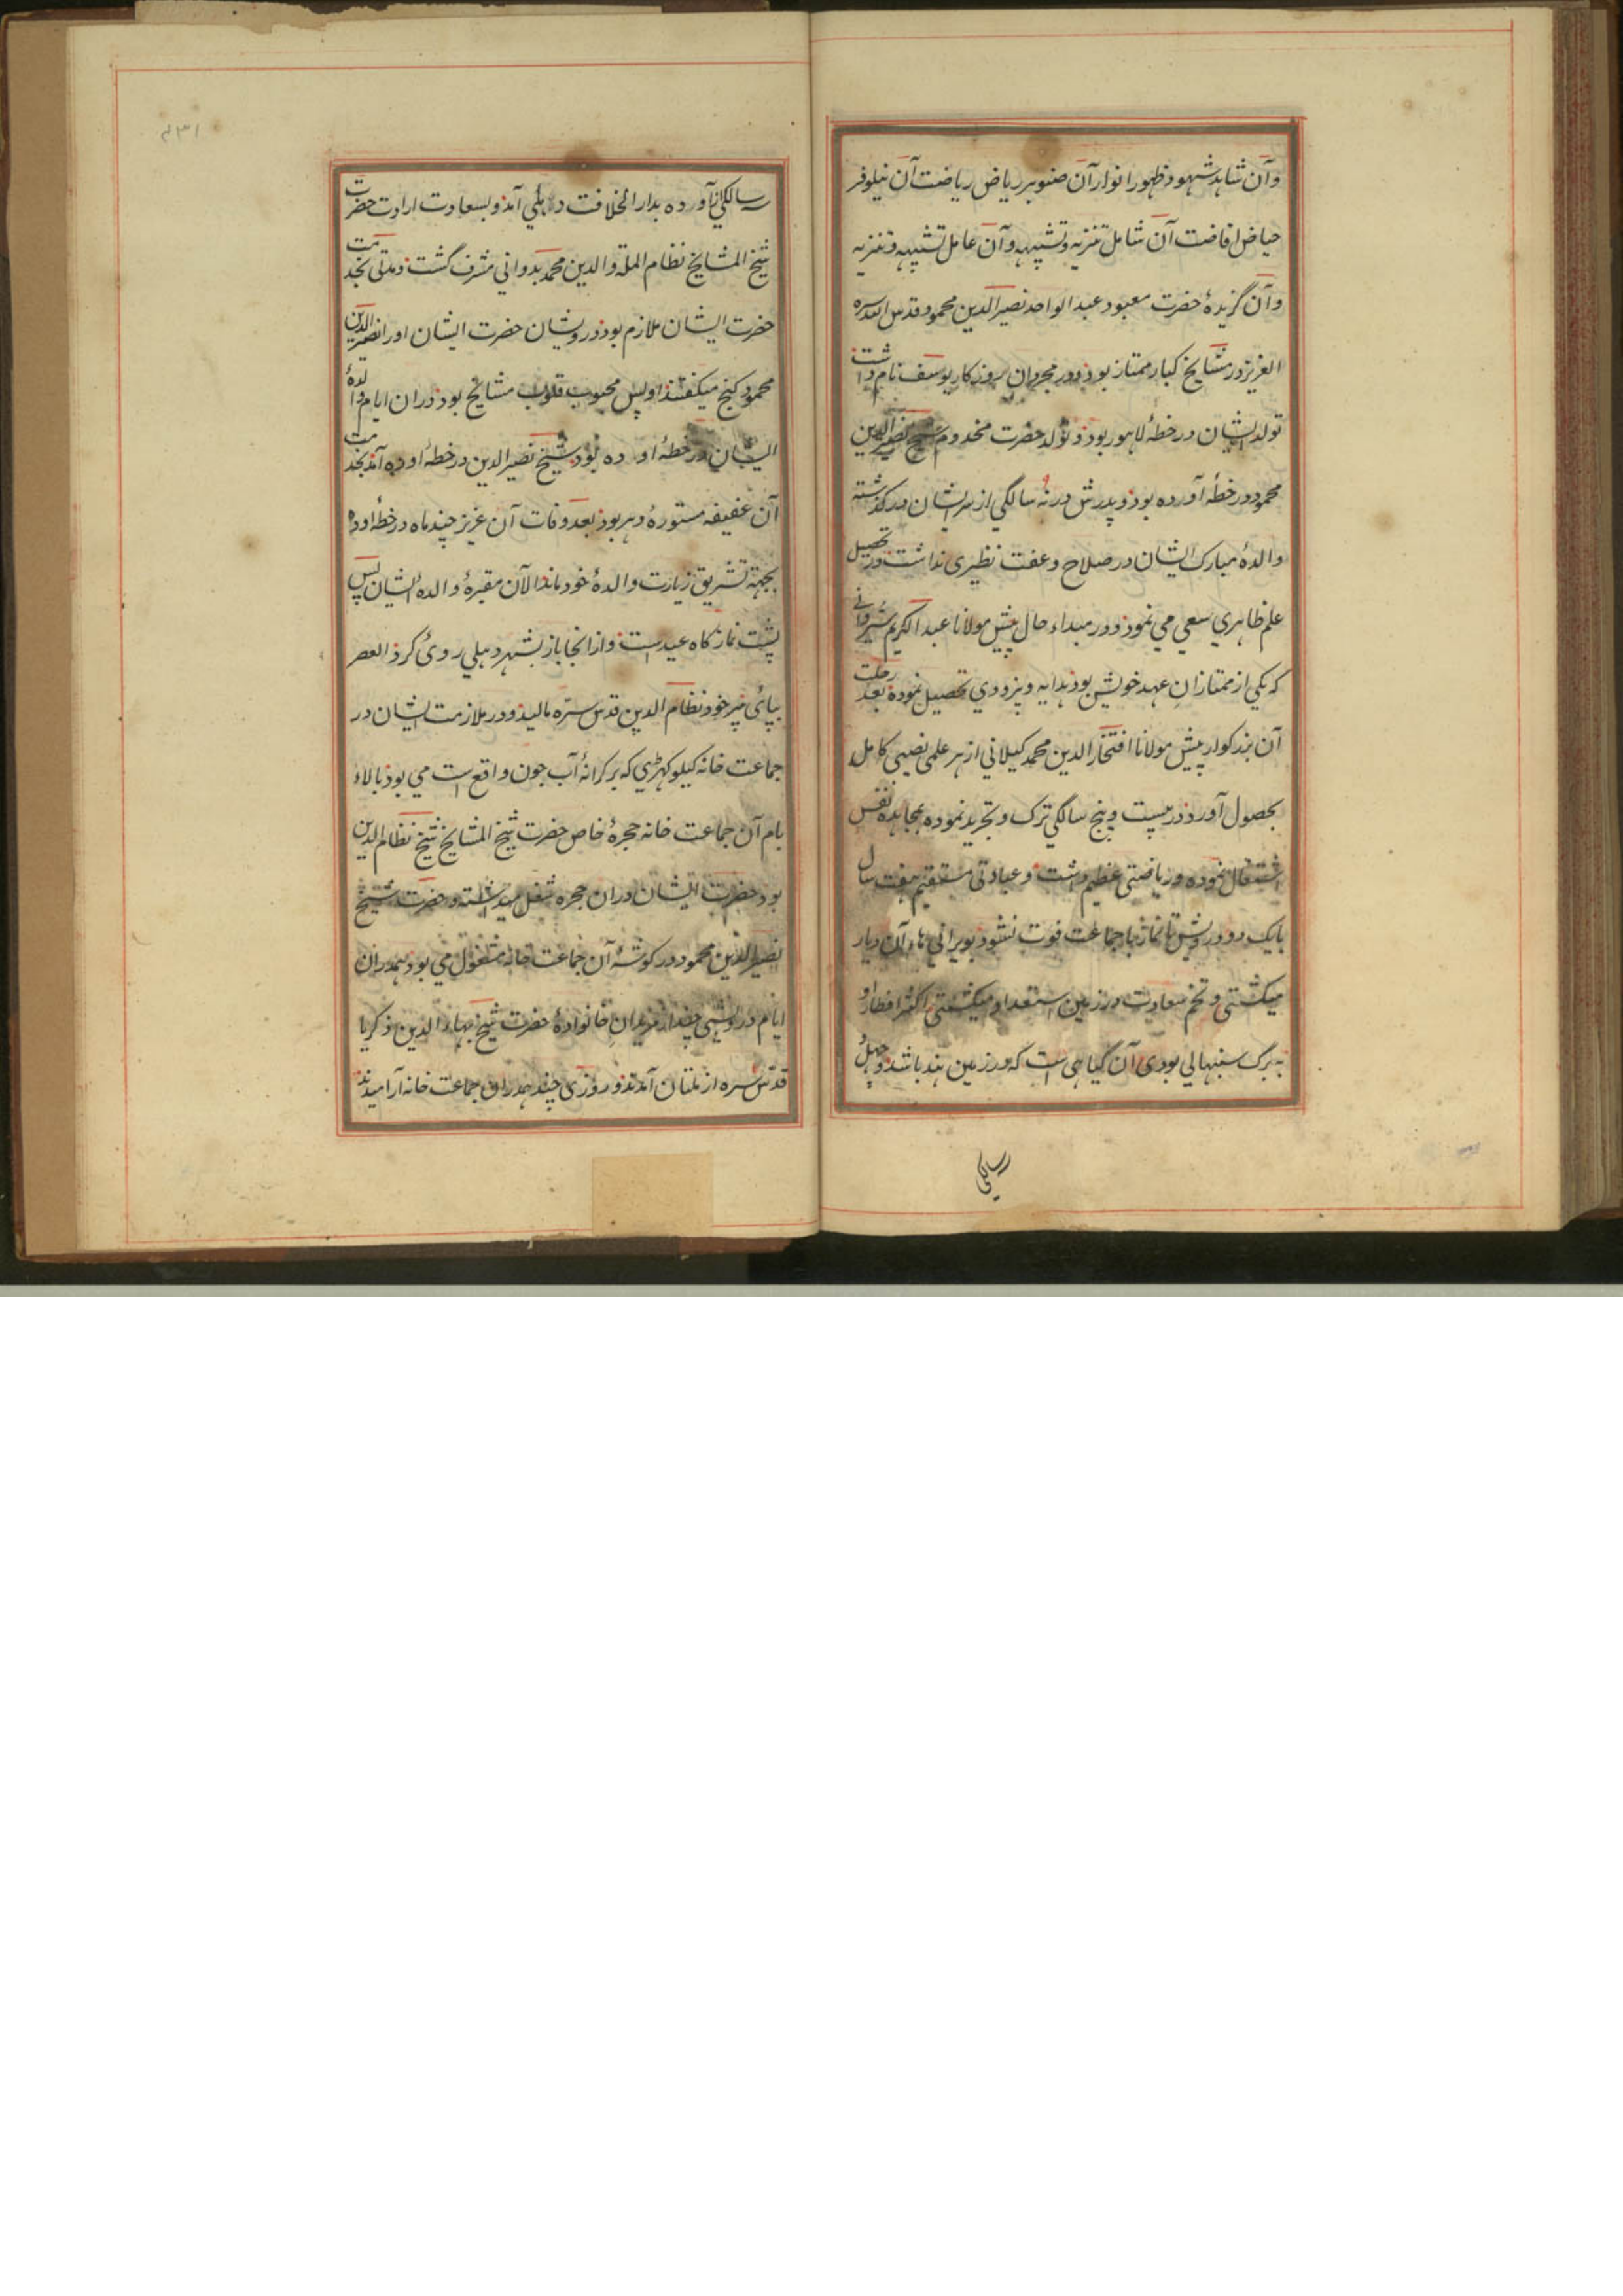 وآن شاهد شهود ظهور انوار آن صنوبر ریاض ریاضت آن نیلوفر
حیاض افاضت آن شامل تنزیه و تشبیه و آن عامل تشبیه و تنزیه
وآن گزیدهٔ حضرت معبود عبد الواحد نصیر الدین محمود قدس الله سره
العزیز در مشایخ کبار ممتاز بود و در مجردان روزکار یوسف نام داشت
تولد ایشان در خطهٔ لاهور بود و تولد حضرت مخدوم شیخ نصیر الدین
محمود در خطهٔ آورده بود و پدرش در نه سالکي از سر ایشان درکذشته
والدهٔ مبارک ایشان در صلاح وعفت نظیری نداشت و در تحصیل
علم ظاهري سعي مي نمود و در مبداء حال پیش مولانا عبد الکریم شروانی
که یکي از ممتازان عهد خویش بود هدایه و بزدوي تحصیل نموده بعد رحلت
آن بزرکوار پیش مولانا افتخار الدین محمد کیلاني از هر علمی نصیبی کامل
بحصول آورد و در بیست و پنج سالکي ترک و تجرید نموده بمجاهدهٔ نفس
اشتغال نموده و ریاضتی عظیم داشت و عبادتی مستقیم هفت سال
بایک دو درویش تا نماز با جماعت فوت نشود بویرانی هاء آن دیار
میکشتی و تخم سعادت در زمین استعداد میکشتی اکثر افطار او
به برک سنبهالي بودی آن کیاهی است که در زمین هند باشد و چهل
سالکي
سالکي از آورده بدار الخلافت دهلي آمد و بسعادت ارادت حضرت
شیخ المشایخ نظام الملة والدین محمد بدواني مشرف گشت و مدتی بخدمت
حضرت ایشان ملازم بود درویشان حضرت ایشان او را نصیر الدین
محمود کنج میکفتند او پس محبوب قلوب مشایخ بود در ان ایام والدهٔ
ایشان در خطهٔ اوده بود شیخ نصیر الدین در خطهٔ اوده آمد بخدمت
آن عفیفه مستورهٔ دهر بود بعد وفات آن عزیز چند ماه در خطهٔ اوده
بجهة زیارت والدهٔ خود ماند الآن مقبرهٔ والدهٔ ایشان پس
پشت نماز کاه عید است و از انجا باز بشهر دهلي روی کرد العصر
بپای پیر خود نظام الدین قدس سره مالید و در ملازمت ایشان در
جماعت خانه کیلوکهڑي که بر کرانهٔ آب جون واقع است مي بود بالاء
بام آن جماعت خانه حجرهٔ خاص حضرت شیخ المشایخ شیخ نظام الدین
بود حضرت ایشان در ان حجره شغل میداشته و حضرت شیخ
نصیر الدین محمود در کوشهٔ آن جماعت خانه مشغول مي بود همدران
ایام درویشی چند از مریدان خانوادهٔ حضرت شیخ بهاء الدین ذکریا
قدس سره از ملتان آمدند و روزی چند همدران جماعت خانه آرامیدند